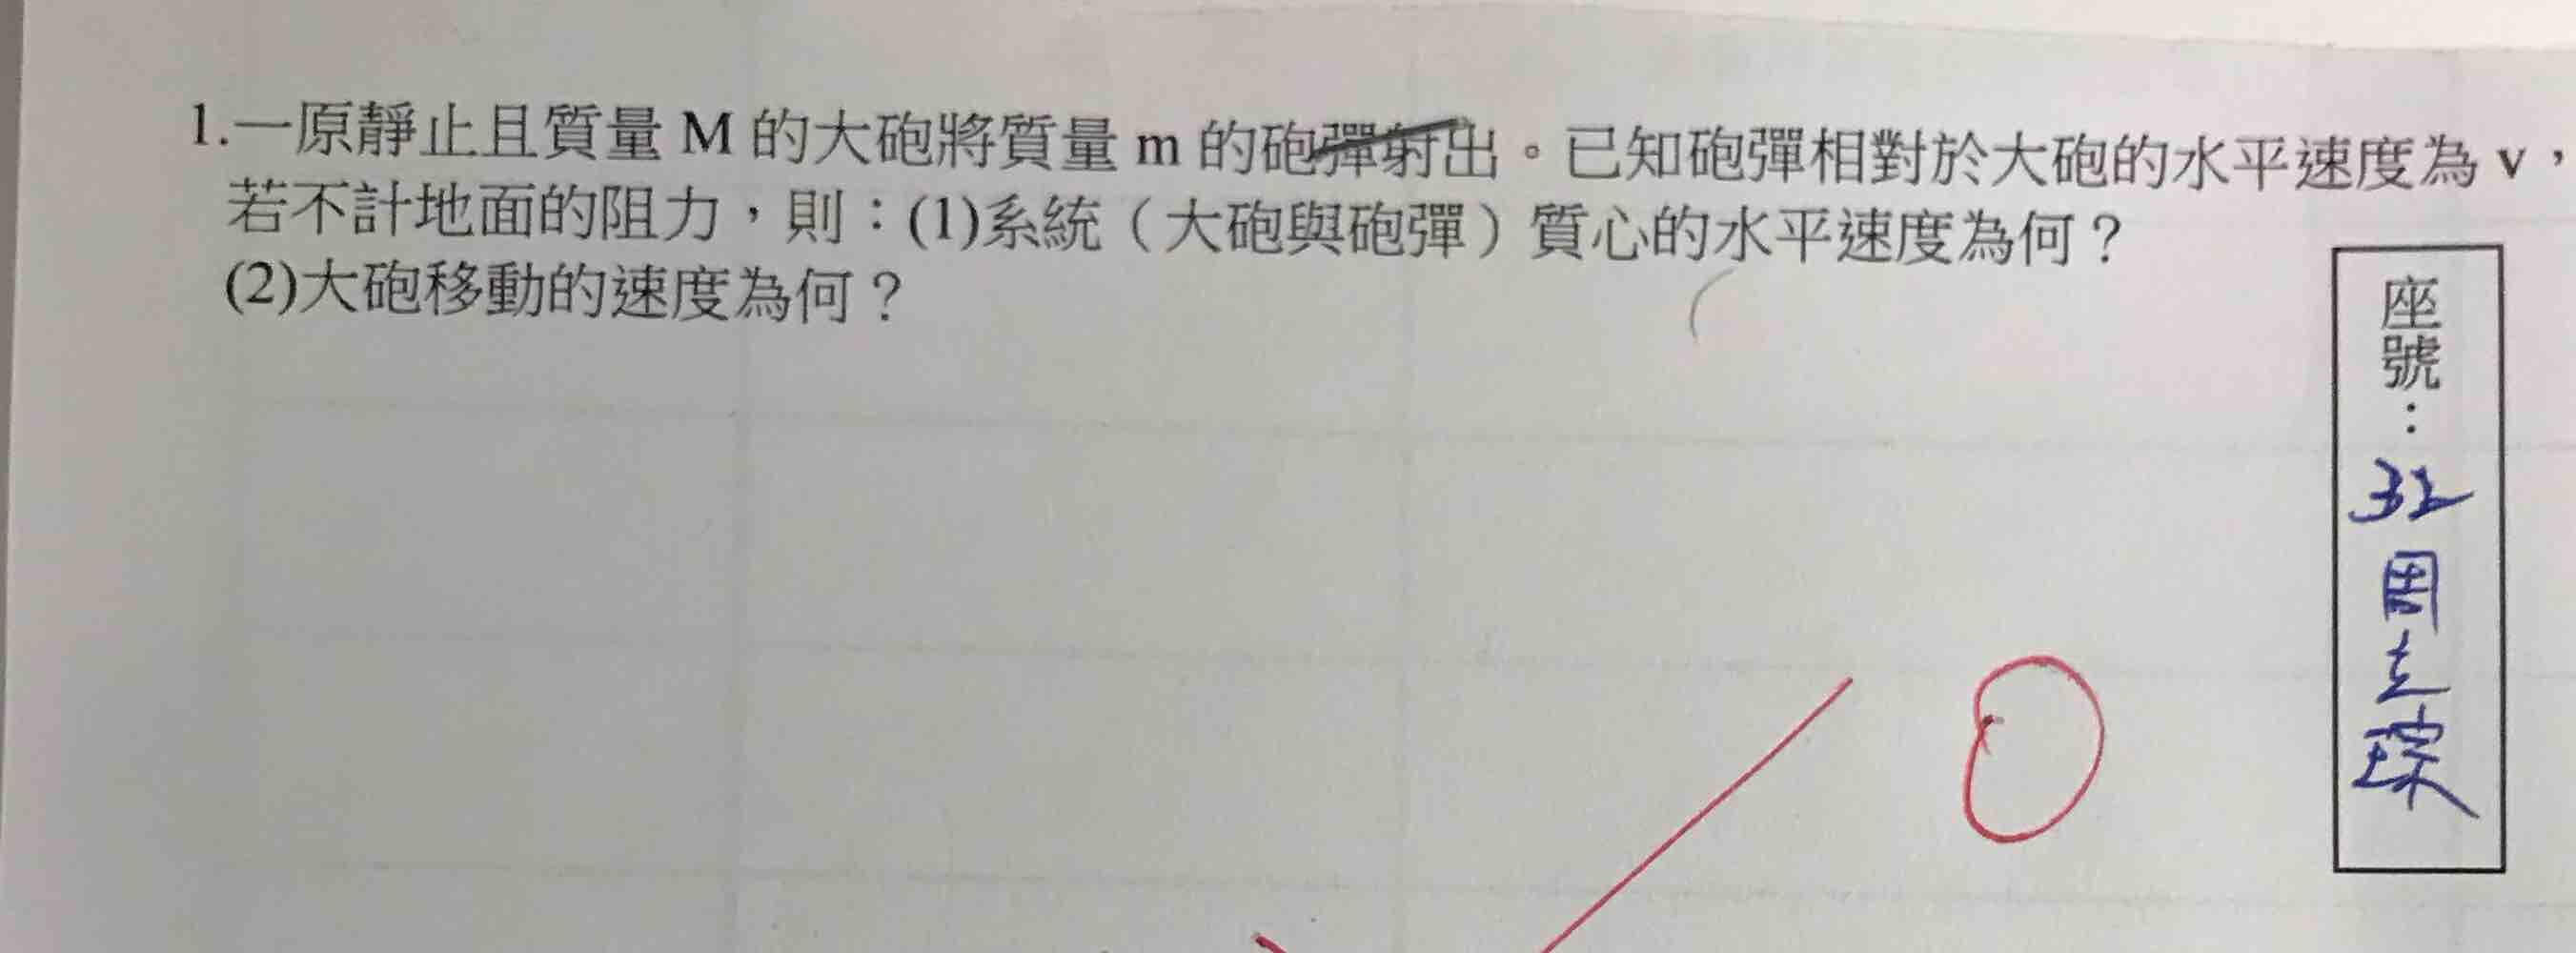 1.一原靜止且質量 M 的大砲將質量 m 的砲彈射出。已知砲彈相對於大砲的水平速度為 v，
若不計地面的阻力，則：(1)系統（大砲與砲彈）質心的水平速度為何？
(2)大砲移動的速度為何？
座號：32
周
琮
0